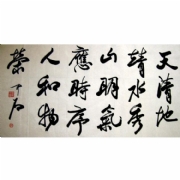 天清地
靖水秀
山明氣
應時序
人和物
榮